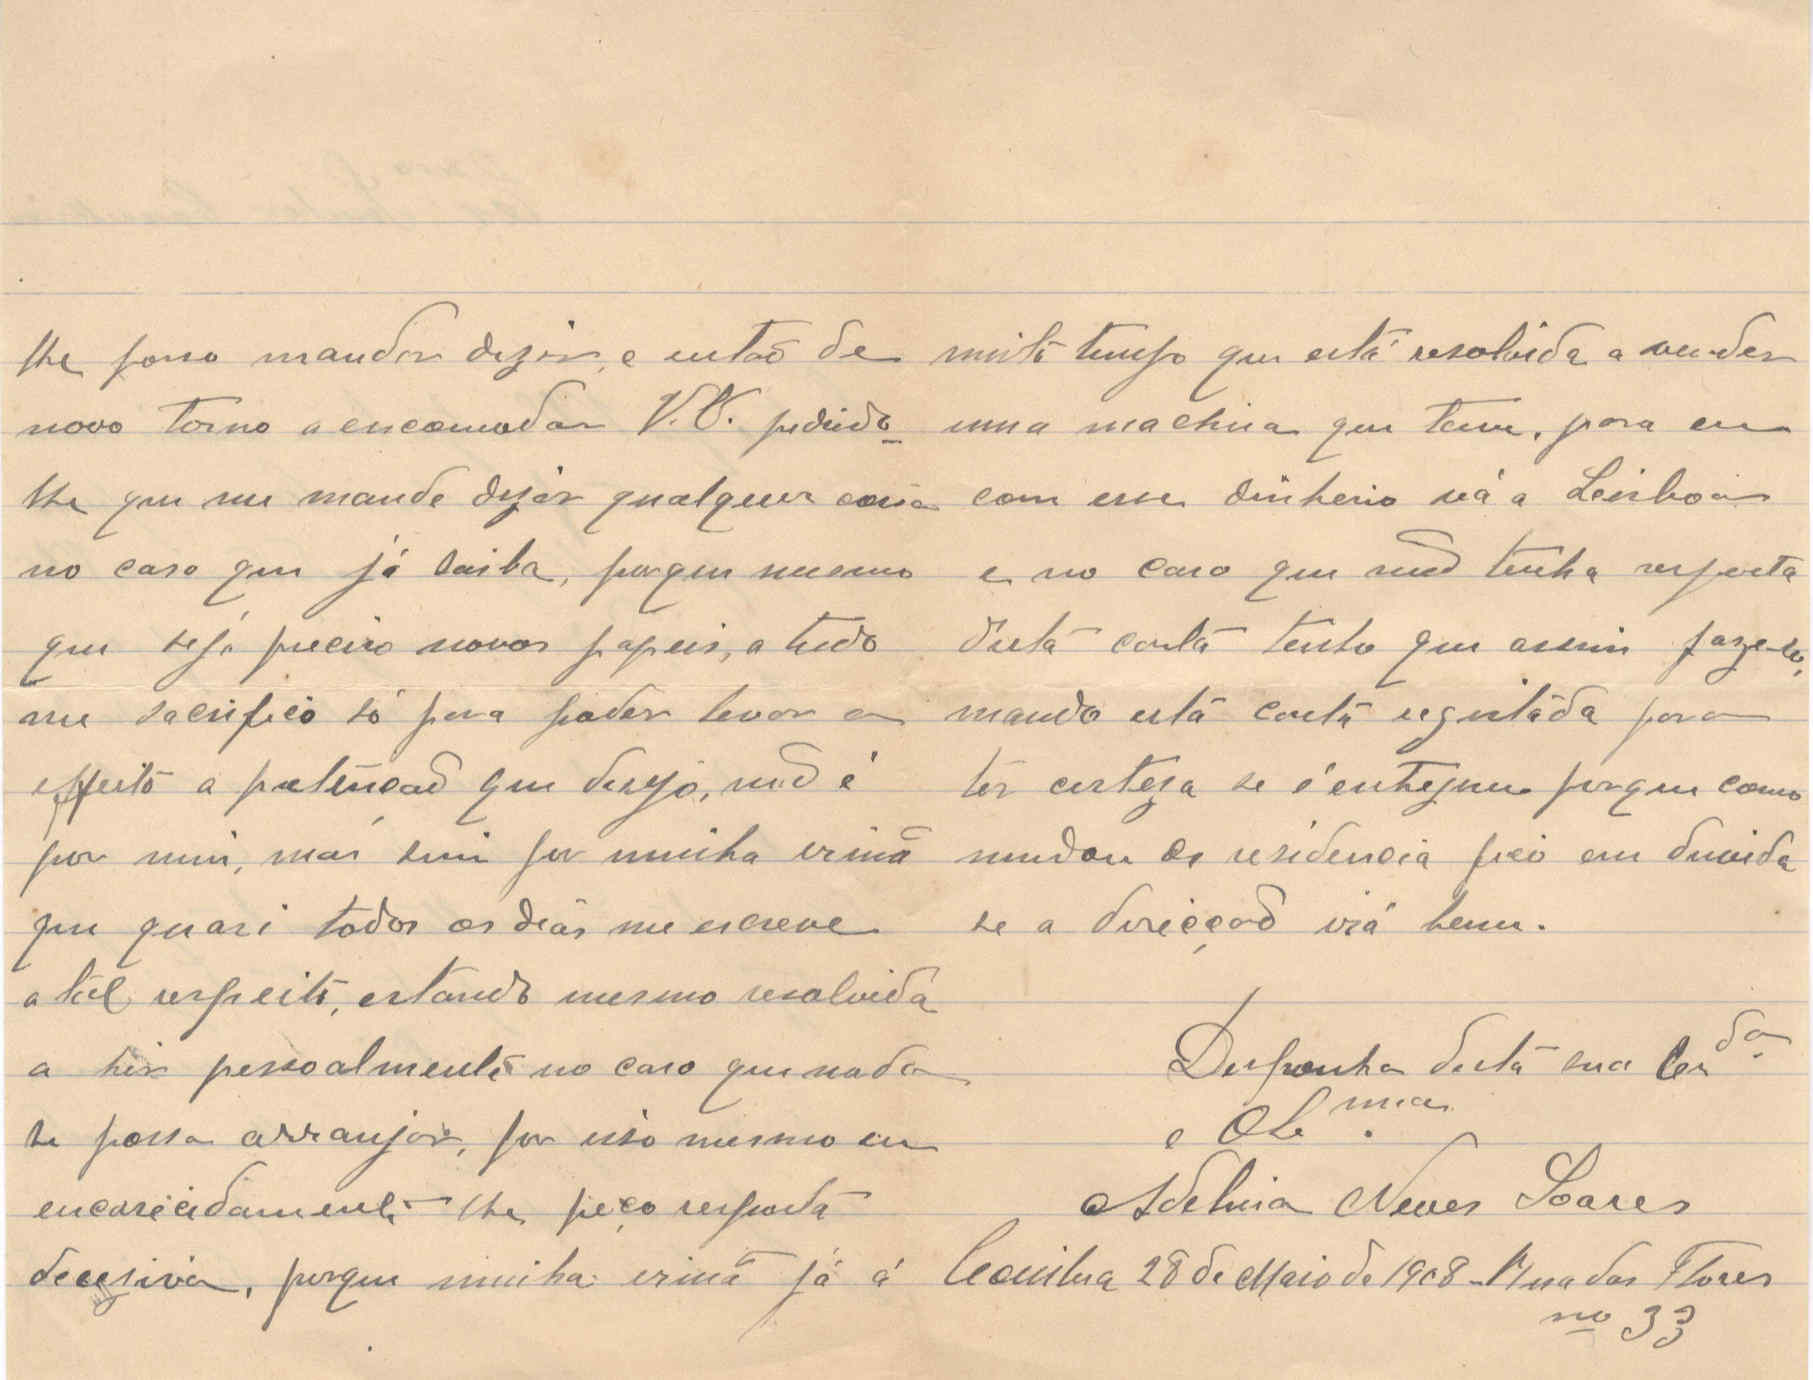 lhe posso mandar dizer, e então de
novo torno a encomodar V. E. pedindo-
lhe que me mande dizer qualquer coisa
no caso que já saiba, porque mesmo
que sejá preciso novos papeis, a tudo
me sacrifico só para poder levar a
effeito a pretenção que desejo, não é
por mim, mas sim por minha irmã
que quasi todos os dias me escreve
a tal respeito, estando mesmo resolvida
a hir pessoalmente no caso que nada
se possa arranjar, por isso mesmo eu
encarecidamente lhe peço resposta
decesiva, porque minha irmã já á
muito tempo que está resolvida a vender
uma machina que tem, para eu
com esse dinheiro ir a Leisboa
e no caso que não tenha resposta
desta carta tenho que assim faze-lo,
mando esta carta registada para
ter certeza se é entregue porque como
mudou de residencia fico em duvida
se a direcção irá bem.
Desponha desta sua Cr.da
e Ob.ma
Adelina Neves Soares
Coimbra 28 de Maio de 1908 - Rua das Flores
no 33